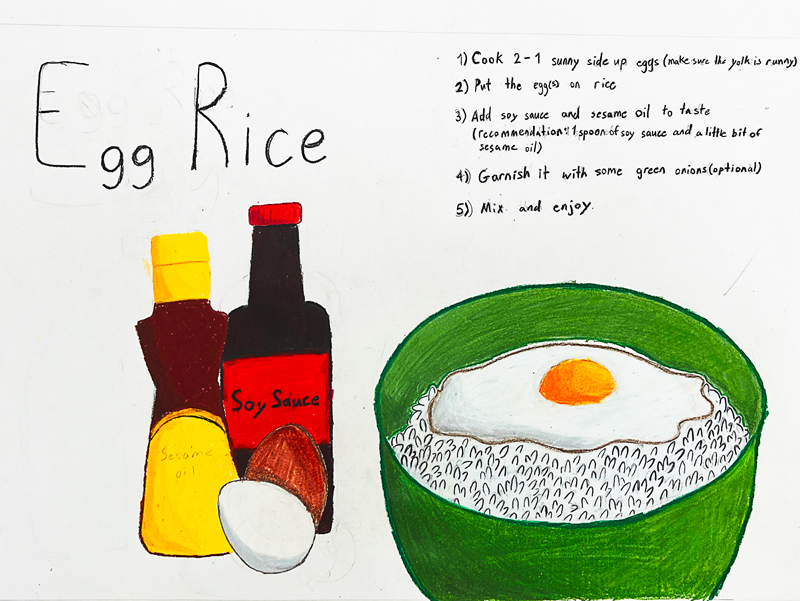 Egg Rice
1) Cook 2-1 sunny side up eggs (make sure the yolk is runny)
2) Put the egg(s) on rice
3) Add soy sauce and sesame oil to taste
(recommendation: 1 spoon of soy sauce and a little bit of
sesame oil)
4) Garnish it with some green onions (optional)
5) Mix and enjoy.
Soy Sauce
Sesame
oil